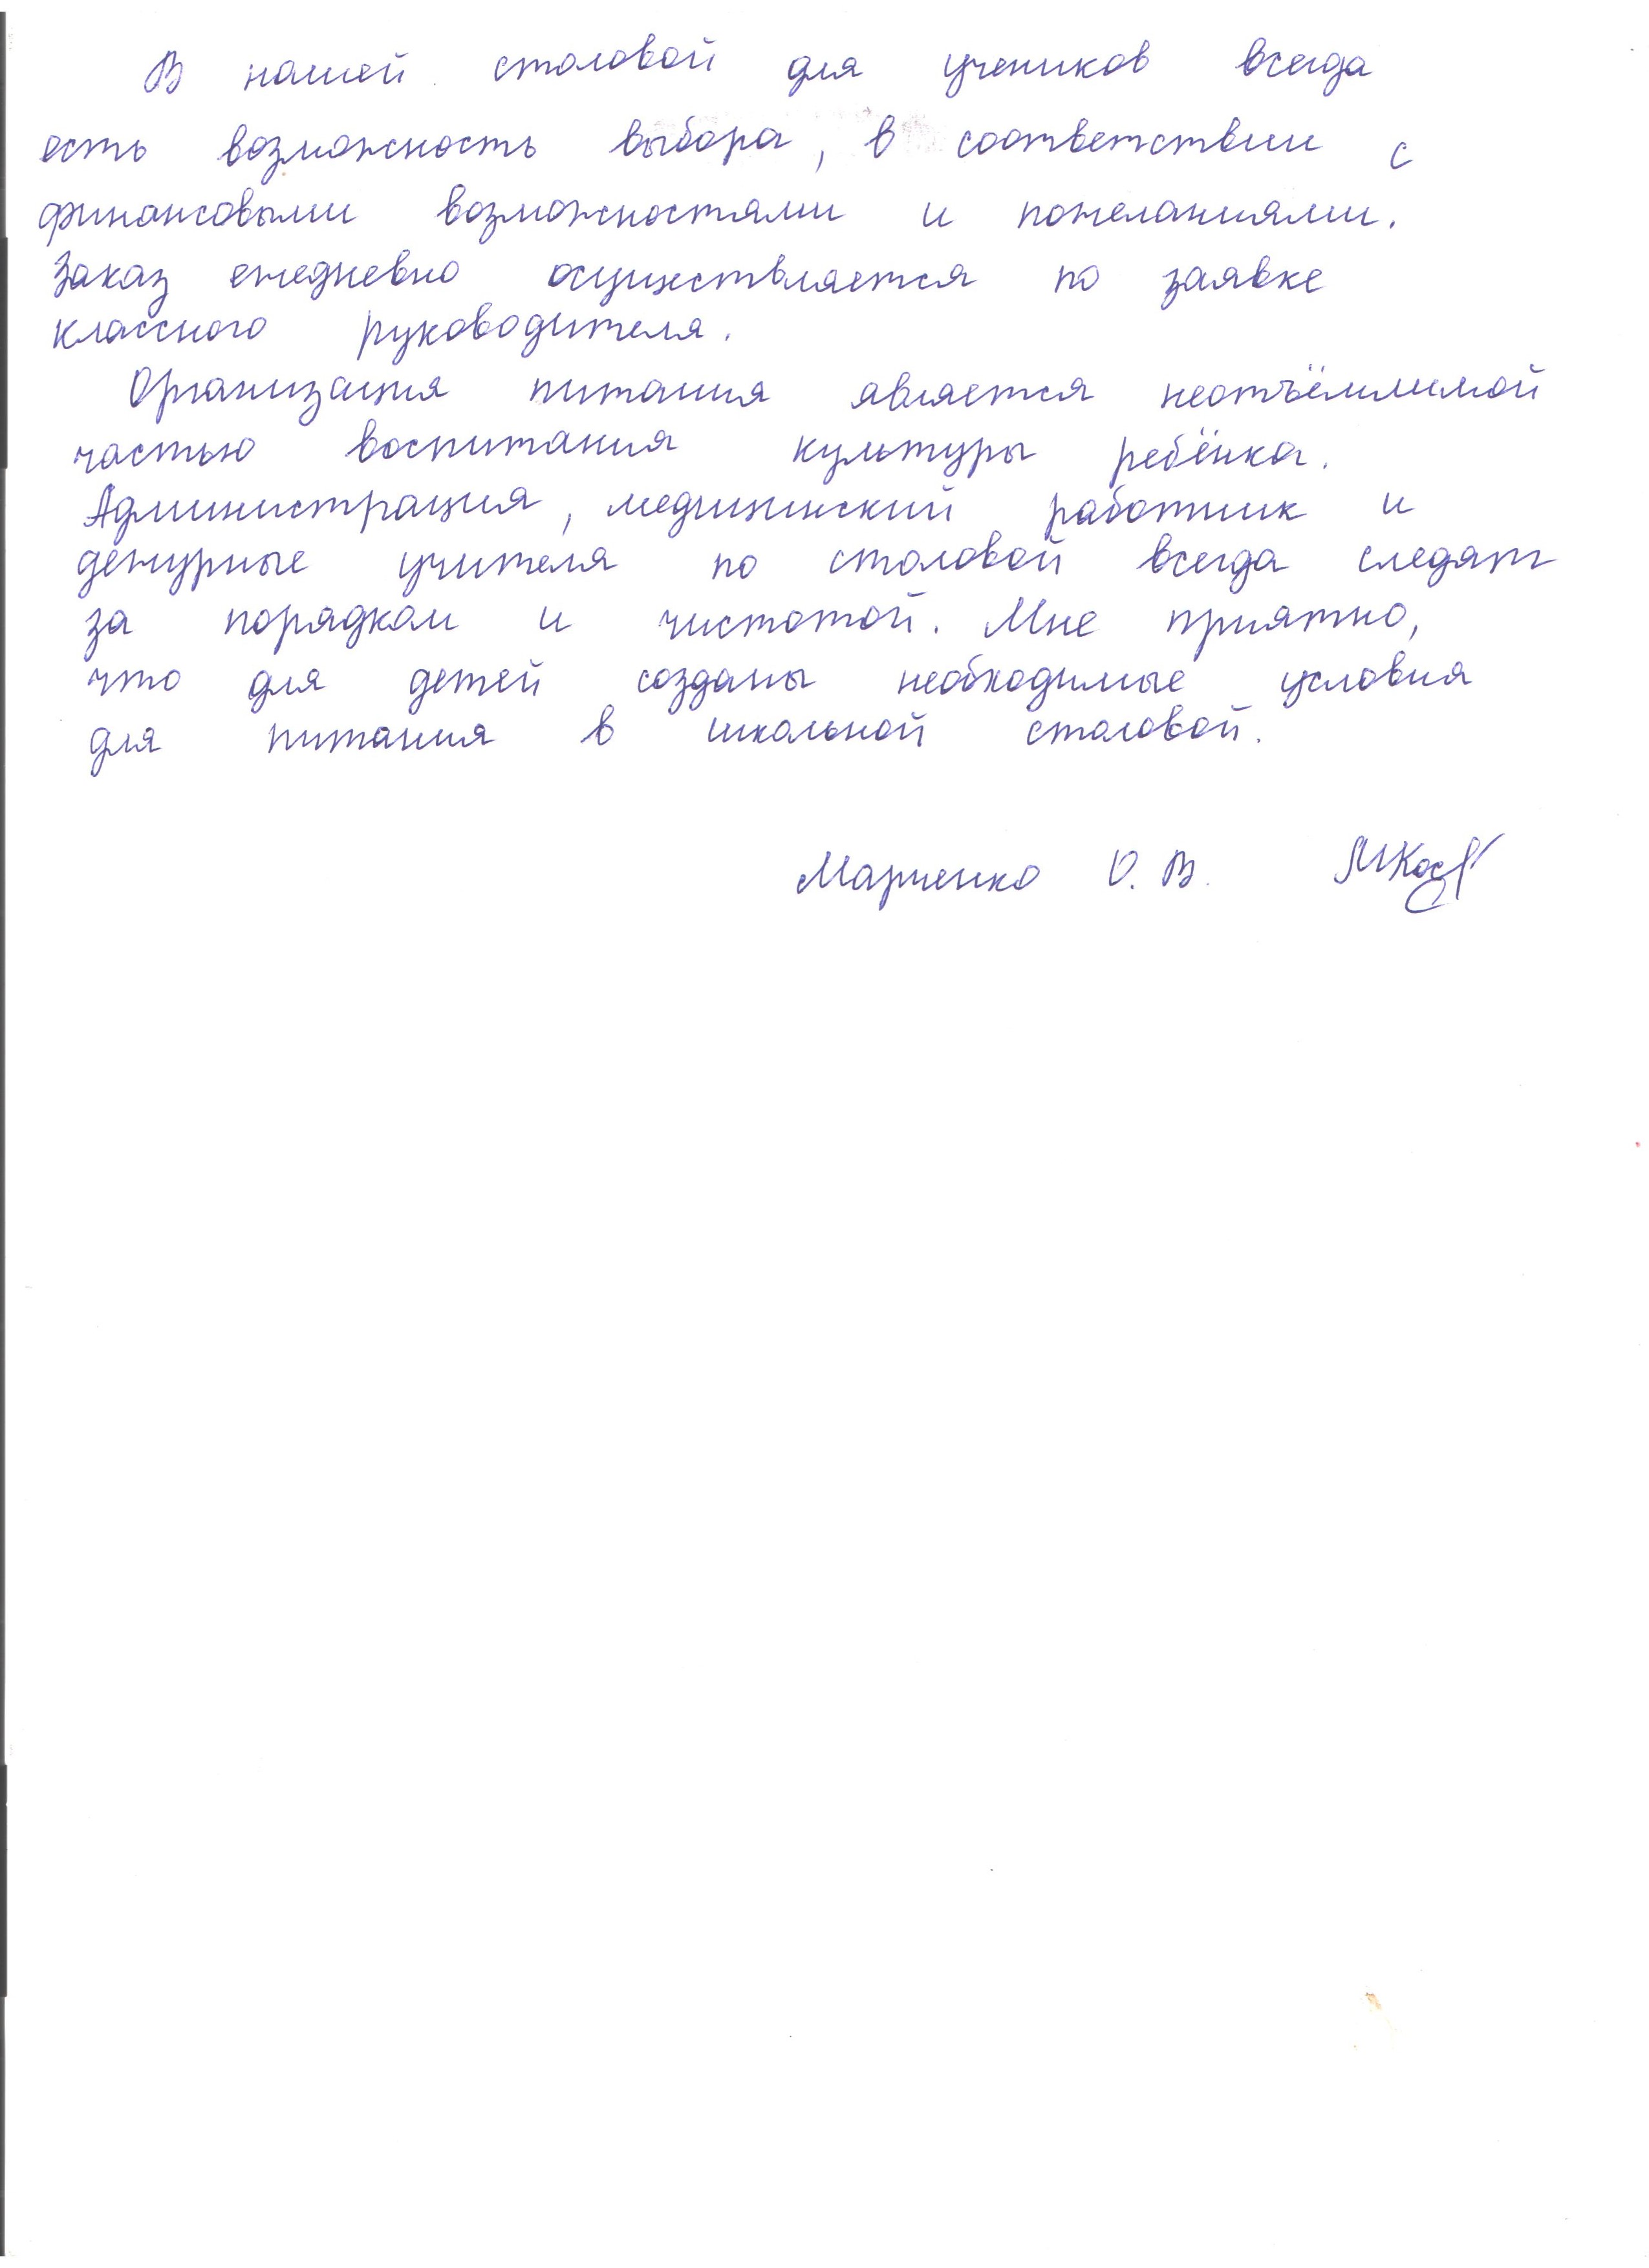 В нашей столовой для учеников всегда
есть возможность выбора, в соответствии с
финансовыми возможностями и пожеланиями.
Заказ ежедневно осуществляется по заявке
классного руководителя.
Организация питания является неотъёмлимой
частью воспитания культуры ребёнка.
Администрация, медицинский работник и
дежурные учителя по столовой всегда следят
за порядком и чистотой. Мне приятно,
что для детей созданы необходимые условия
для питания в школьной столовой.
Марченко О. В.